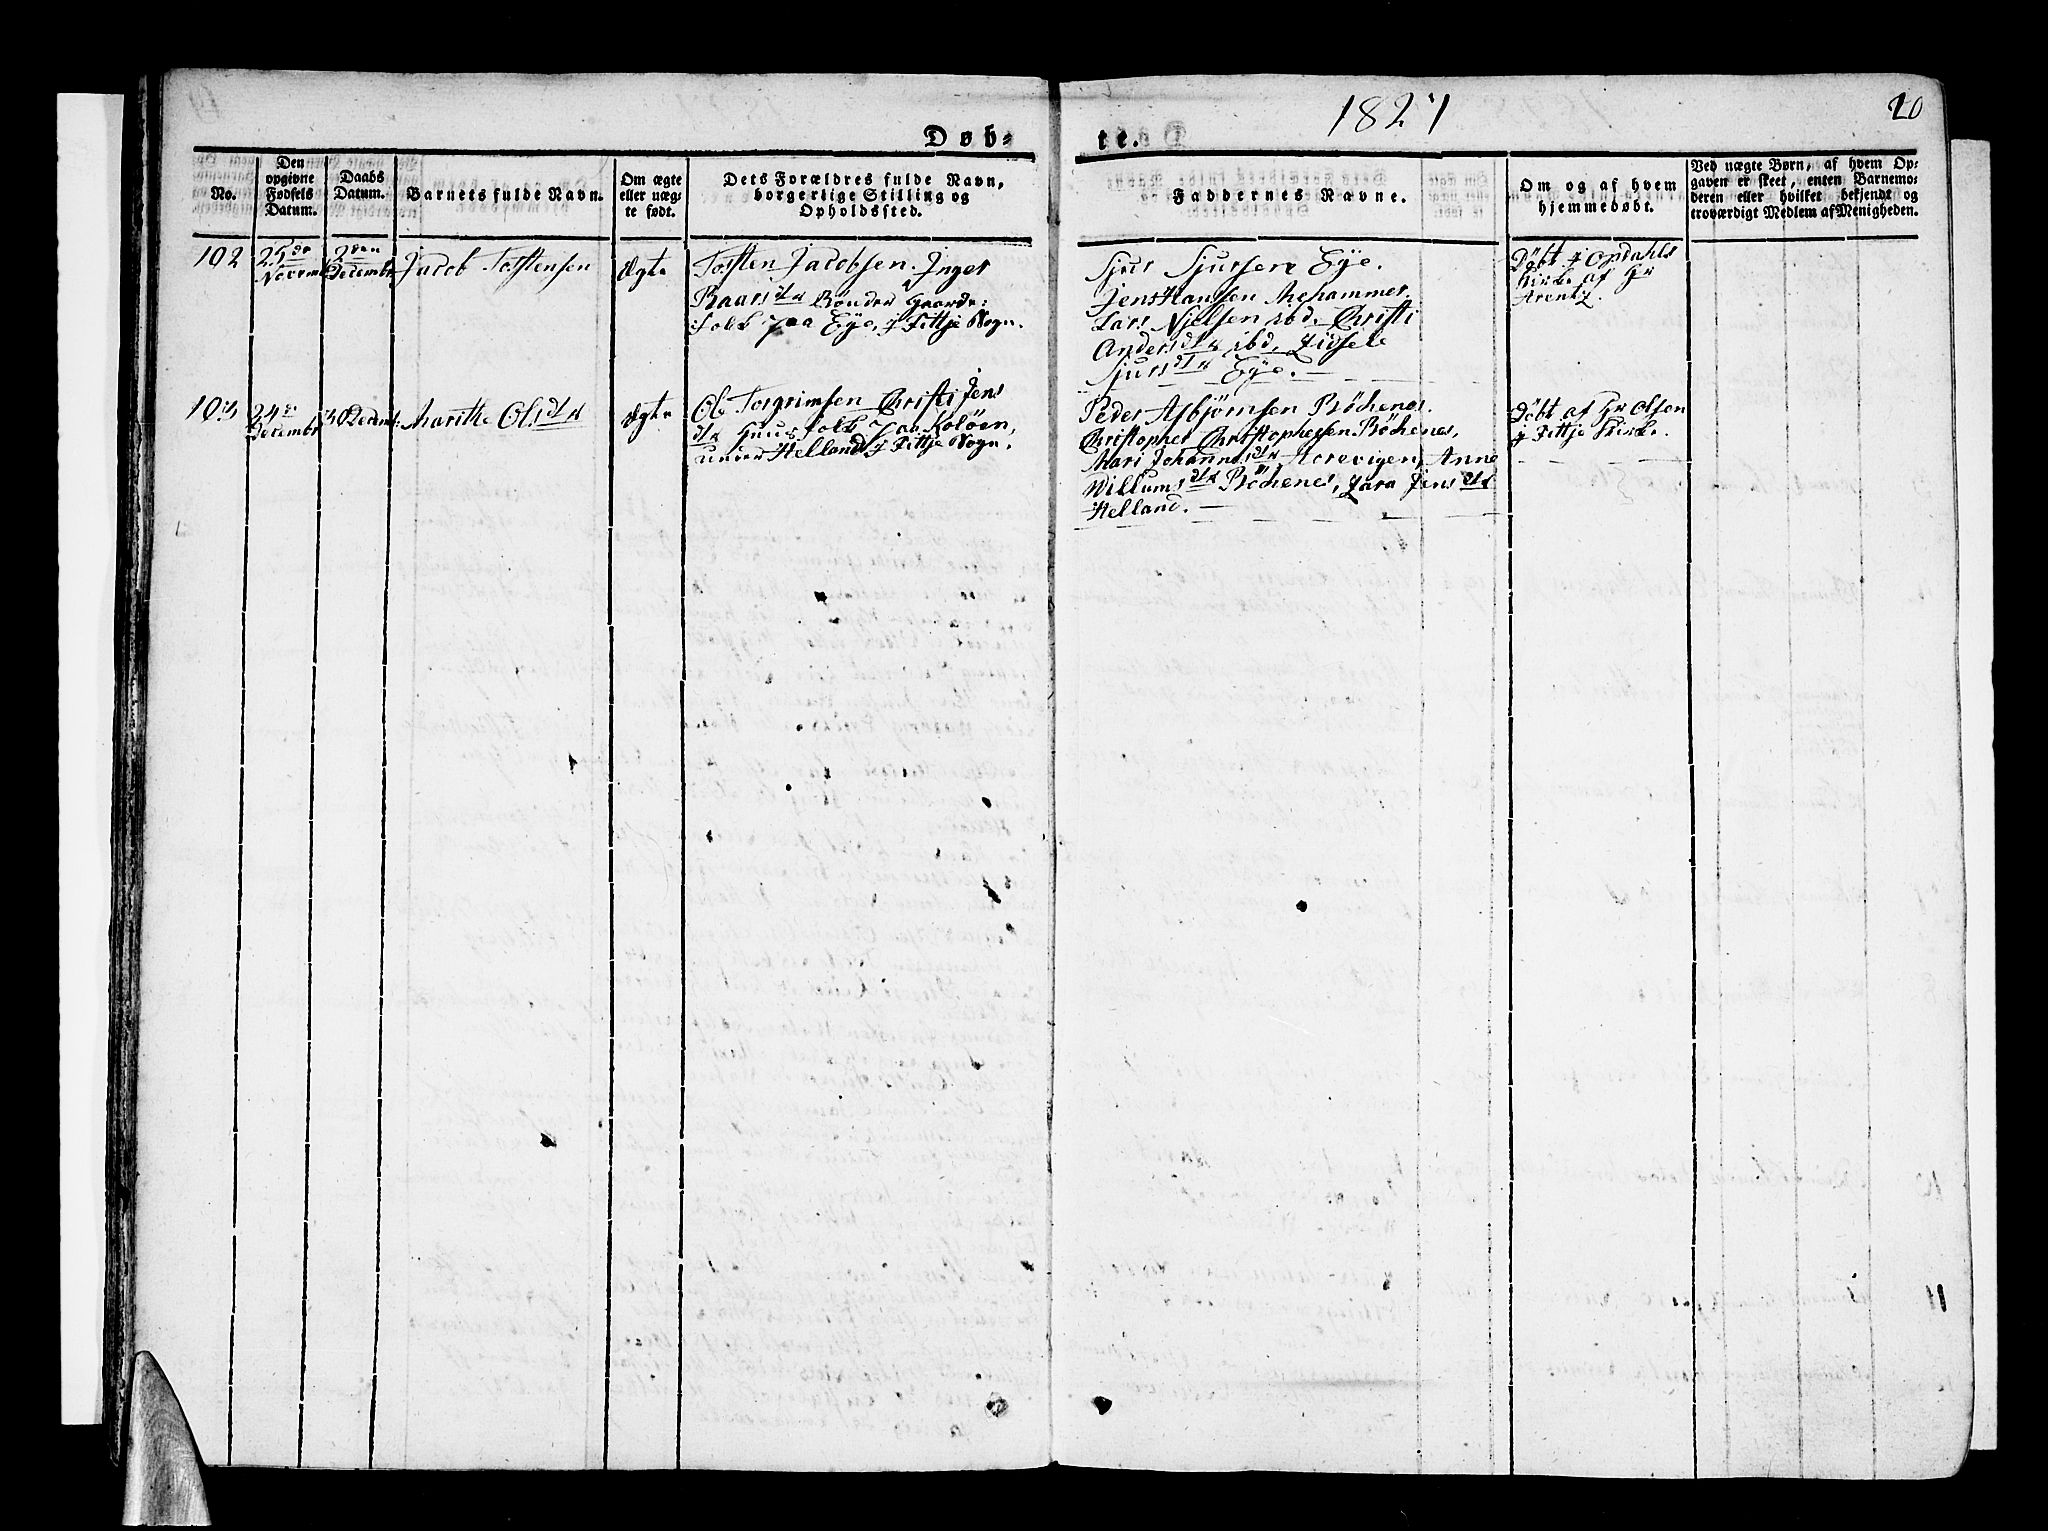 1827
20
Døb-
te.
No.
Den
opgivne
Fødsels
Datum.
Daabs
Datum.
Barnets fulde Navn.
Om ægte
eller uæg-
te født.
Dets Forældres fulde Navn,
borgerlige Stilling og
Opholdssted.
Faddernes Navne.
Om og af hvem
hjemmedøbt.
Ved uægte Børn, af hvem Op-
gaven er skeet, enten Barnemo-
deren eller hvilket bekjendt og
troværdigt Medlem af Menigheden.
102
25de
Novemb
2den
Decembr
Jacob Torstensen
Ægte
Torsten Jacobsen. Inger
Baarsdtr Bönder Gaards:
folk paa Eye, i Fittje Sogn.
Sjur Sjursen Eye.
Jens Hanssen Mehammer,
Lars Njelsen ibd, Christi
Andersdtr ibd, Zidsele
Sjursdtr Eye.
Döbt i Opdahls
Kirke af Hr
Arentz.
103
24de
Decembr
Decemb:
Marithe Olsdtr
ægte
Ole Torgrimsen Christi Jens
dtr Huusfolk paa Kolöen,
under Helland i Fittje Sogn.
Peder Asbjörnsen Böchenes.
Christopher Christophersen Böchenes,
Mari Johannesdtr Aarevigen, Anne
Willumsdtr Böchenes, Zara Jensdtr
Helland.
Döbt af Hr Olsen
i Fittje Kirke.